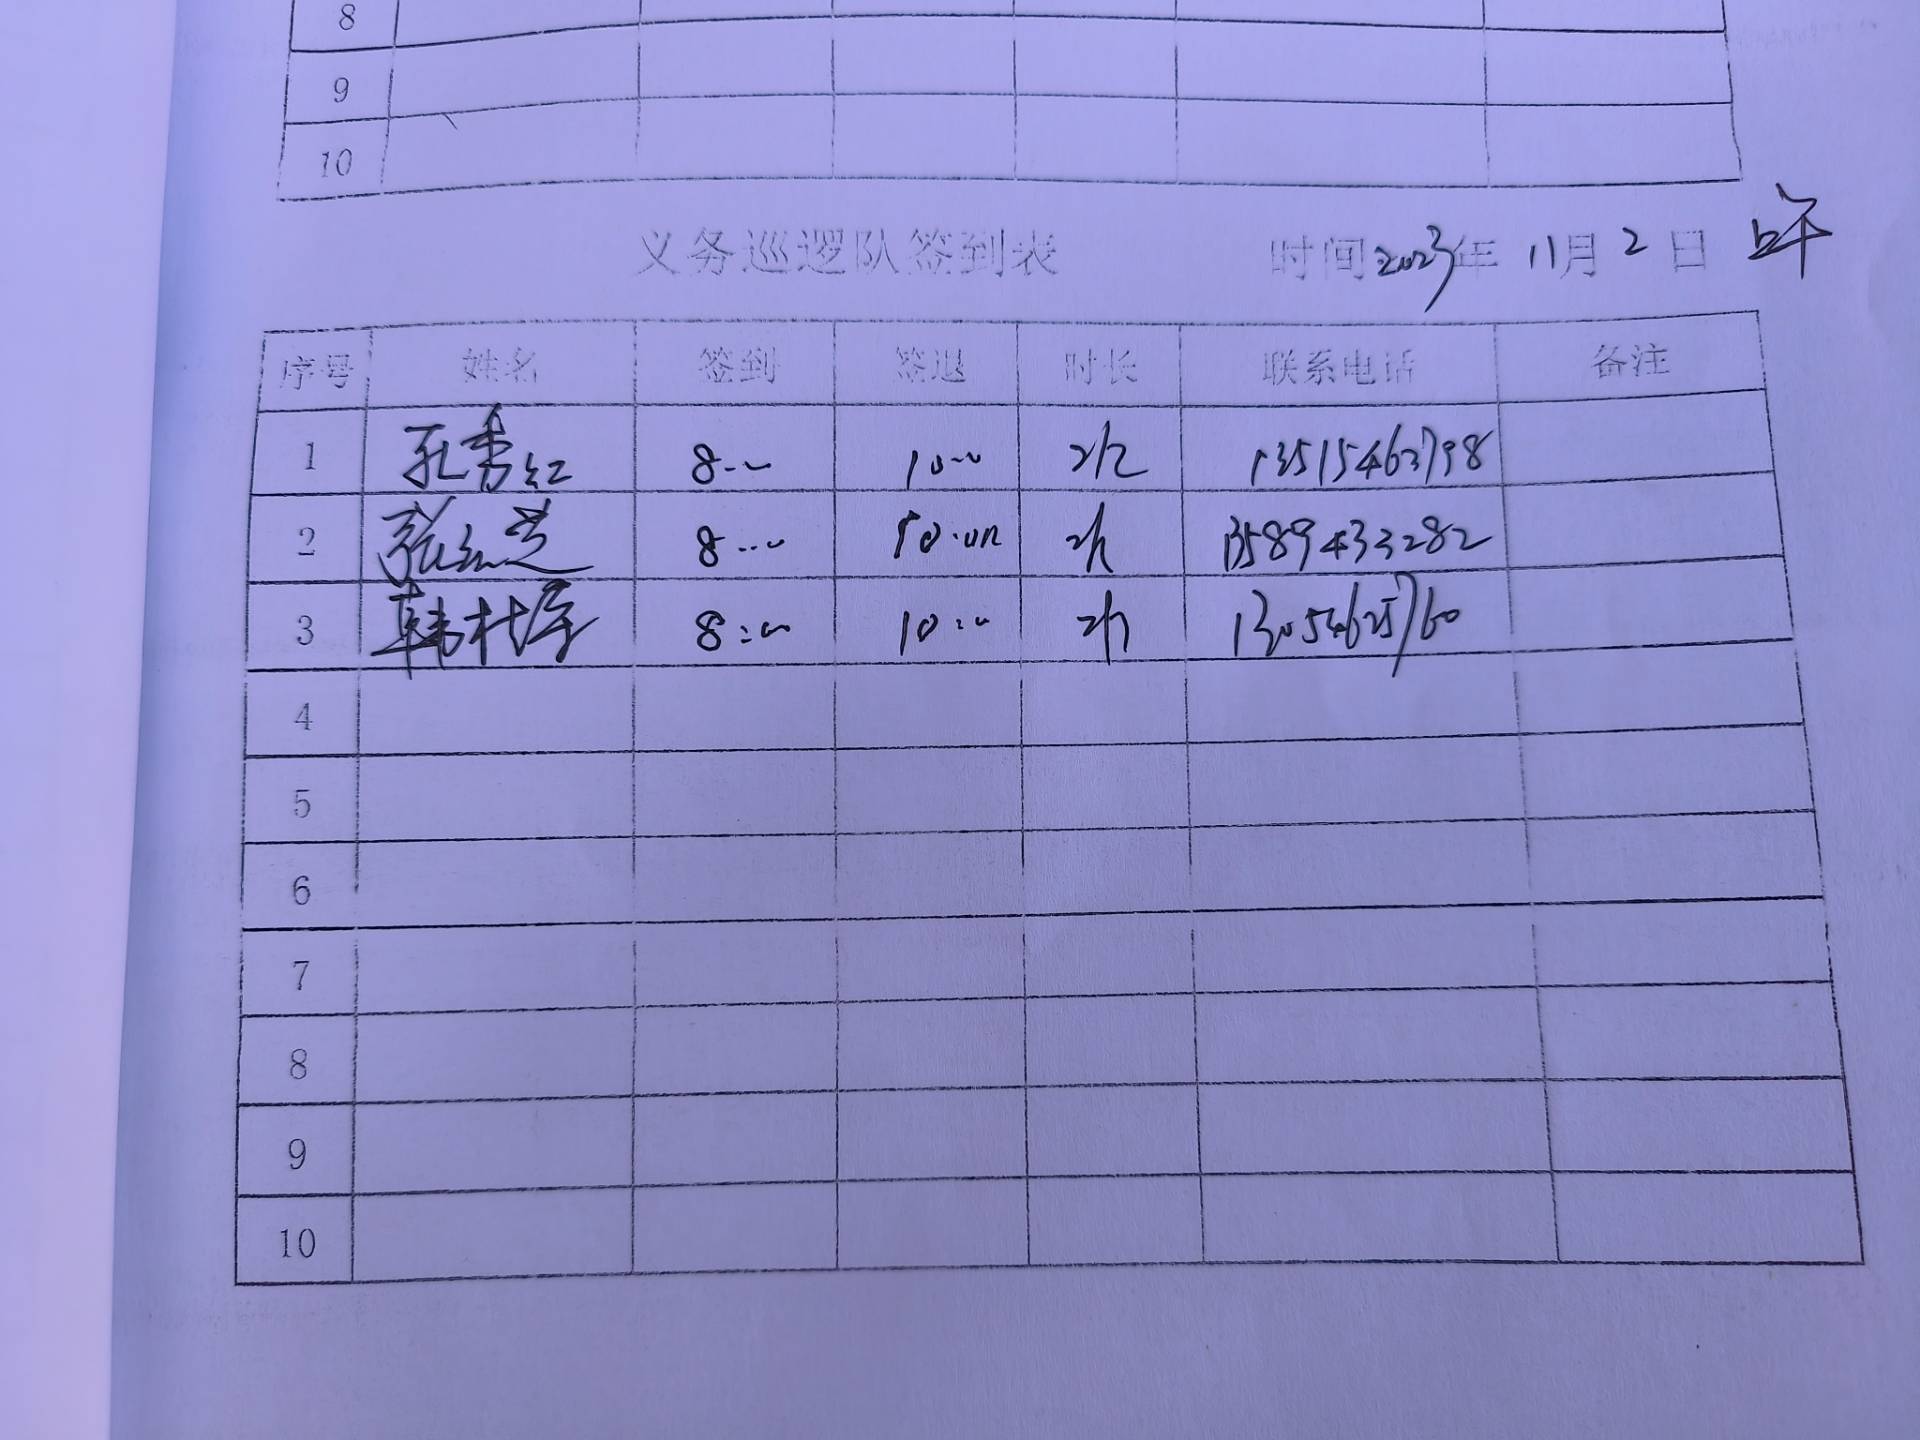 8
9
10
义务巡逻队签到表 时间2023年 11月 2 日 上午
序号 姓名 签到 签退 时长 联系电话 备注
1 孔秀红 8:00 10:00 2h 13515463798
2 8:00 10:00 2h 13589433282
3 8:00 10:00 2h 13054625760
4
5
6
7
8
9
10